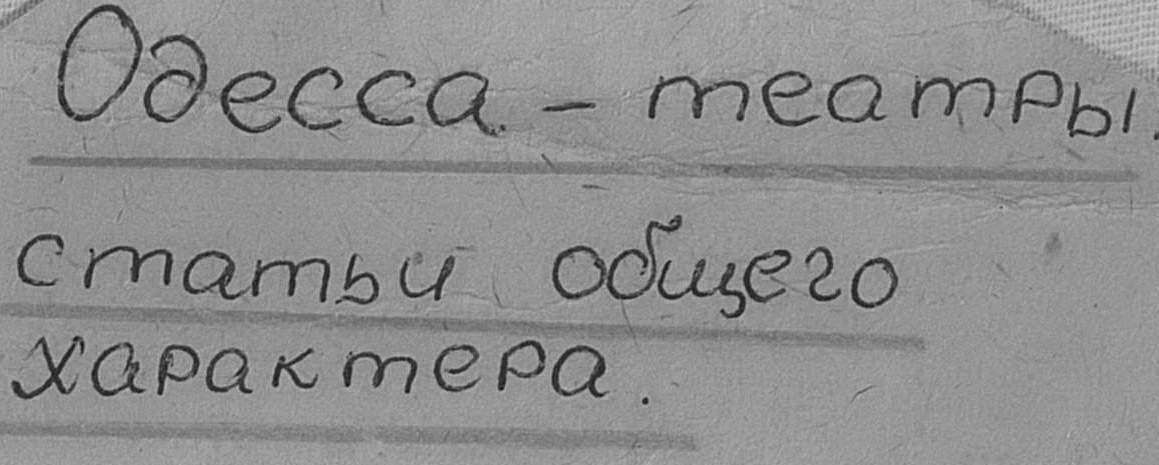 Одесса – театры.
статьи общего
характера.